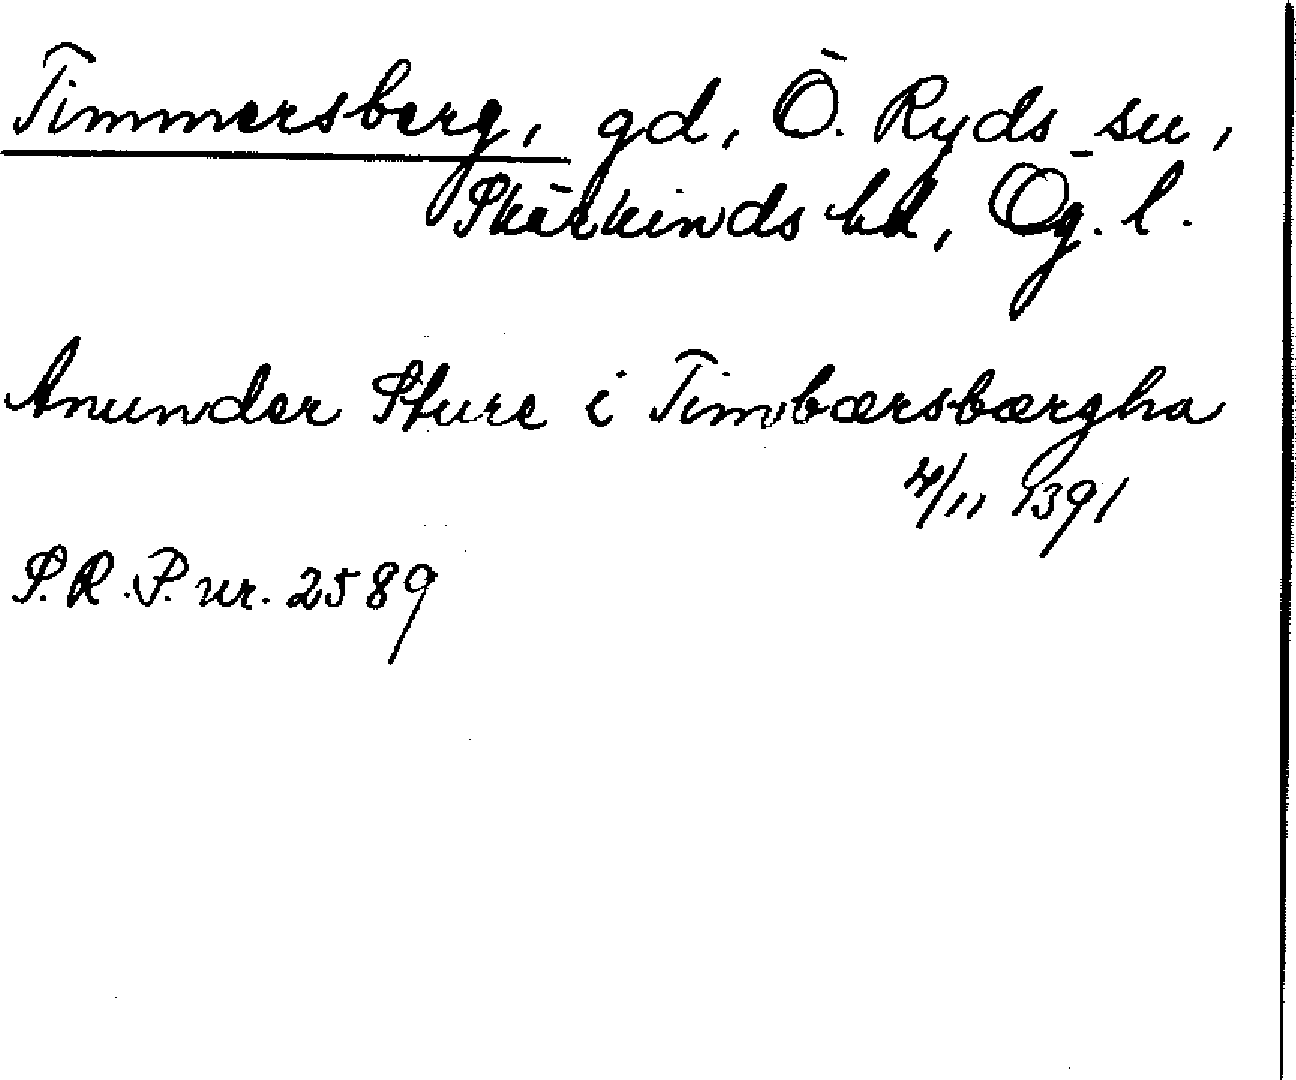 Timmersberg, gd, Ö. Ryds sn,
Skärkinds hd, Ög. l.
Anunder Sture i Timbærsbærgha
4/11 1391
S.R.P. nr. 2589